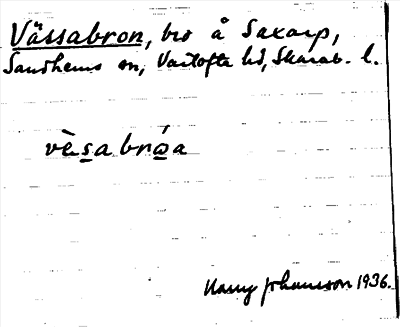 Vässabron, bro å Saxarp,
Sandhems sn, Vartofta hd, Skarab. l.
vèsabrώa
Harry Johansson 1936.